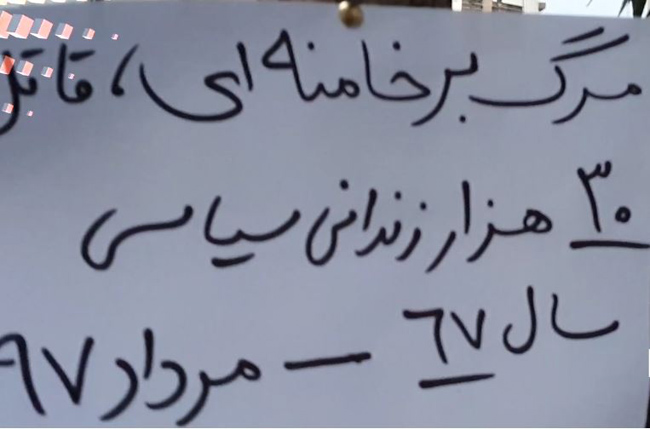 مرگ بر خامنه ای، قاتل
۳۰ هزار زندانی سیاسی
سال ۶۷ — مرداد ۹۷